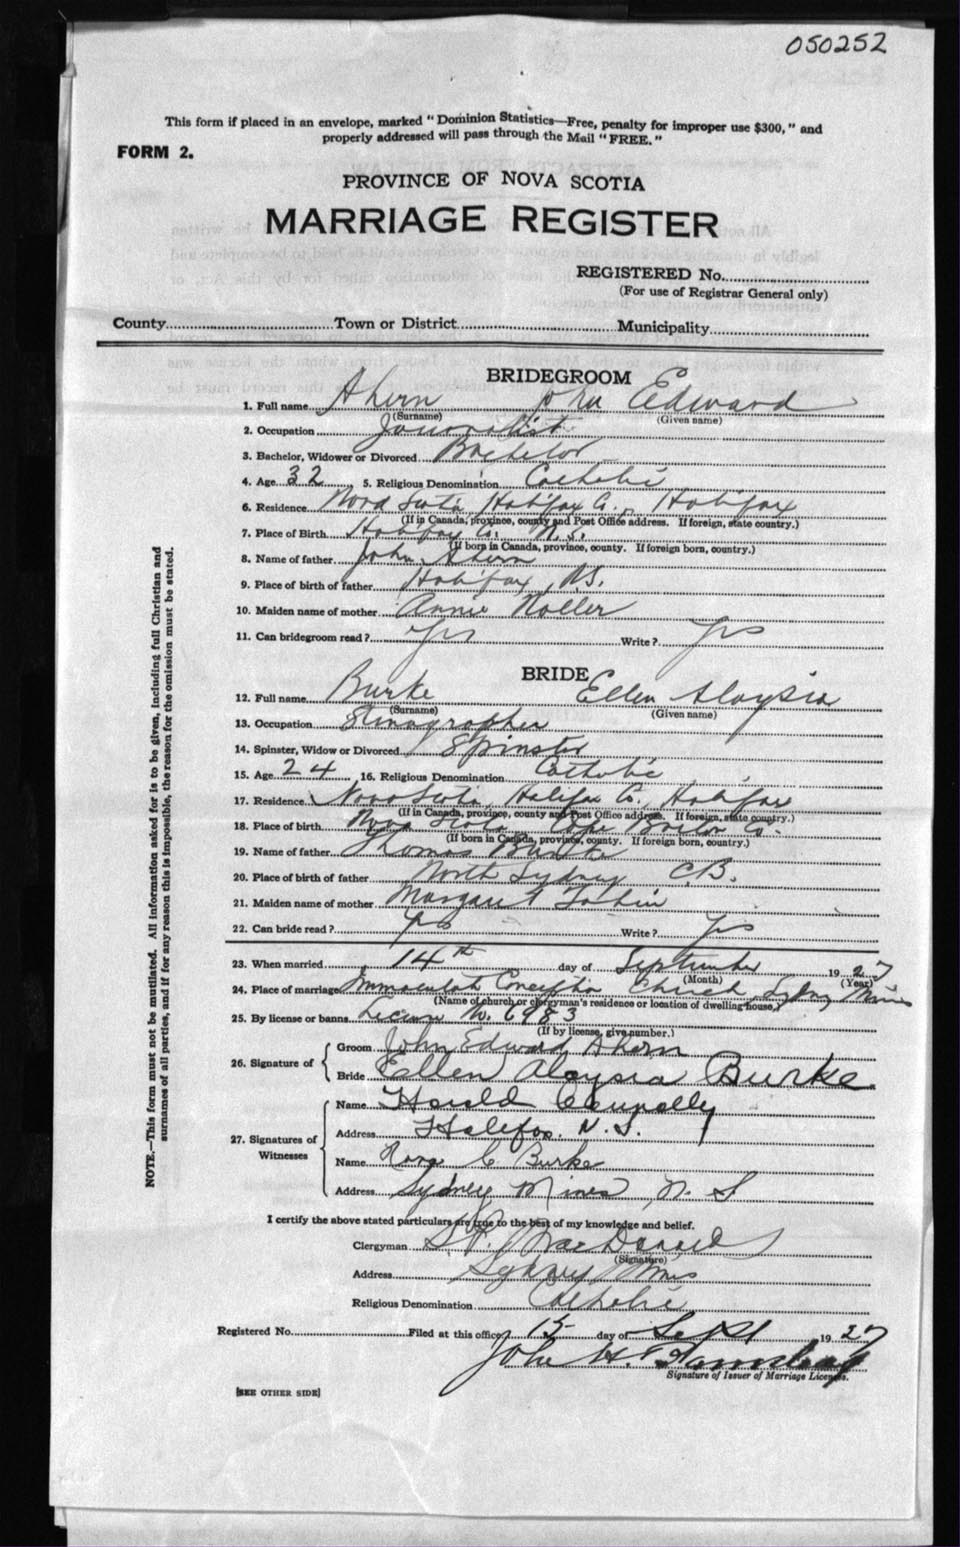 050252
This form if placed in an envelope, marked "Dominion Statistics—Free, penalty for improper use $300," and
properly addressed will pass through the Mail "FREE."
FORM 2.
PROVINCE OF NOVA SCOTIA
MARRIAGE REGISTER
REGISTERED No.
(For use of Registrar General only)
County Town or District Municipality
BRIDEGROOM
1. Full name Ahern John Edward
(Surname) (Given name)
2. Occupation Journalist
3. Bachelor, Widower or Divorced Bachelor
4. Age 32 5. Religious Denomination Catholic
6. Residence Nova Scotia, Halifax Co., Halifax
(If in Canada, province, county and Post Office address. If foreign, state country.)
7. Place of Birth Halifax Co. N.S.
(If born in Canada, province, county. If foreign born, country.)
8. Name of father John Ahern
9. Place of birth of father Halifax, N.S.
10. Maiden name of mother Annie
11. Can bridegroom read? Yes Write? Yes
BRIDE
12. Full name Burke Ellen Aloysia
(Surname) (Given name)
13. Occupation Stenographer
14. Spinster, Widow or Divorced Spinster
15. Age 24 16. Religious Denomination Catholic
17. Residence Nova Scotia, Halifax Co., Halifax
(If in Canada, province, county and Post Office address. If foreign, state country.)
18. Place of birth Nova Scotia Cape Breton Co.
(If born in Canada, province, county. If foreign born, country.)
19. Name of father Thomas Burke
20. Place of birth of father North Sydney C.B.
21. Maiden name of mother Margaret Tobin
22. Can bride read? Yes Write? Yes
23. When married 14th day of September 1927
(Month) (Year)
24. Place of marriage Immaculate Conception Church Sydney Mines
(Name of church or clergyman's residence or location of dwelling house.)
25. By license or banns License No. 6983
(If by license, give number.)
26. Signature of
Groom John Edward Ahern
Bride Ellen Aloysia Burke.
27. Signatures of Witnesses
Name Harold Connolly
Address Halifax. N.S.
Name C Burke
Address Sydney Mines N. S
I certify the above stated particulars are true to the best of my knowledge and belief.
Clergyman MacDonald
(Signature)
Address Sydney Mines
Religious Denomination Catholic
Registered No. Filed at this office 15 day of Sept 1927
John H.
Signature of Issuer of Marriage Licenses.
[SEE OTHER SIDE]
NOTE.—This form must not be mutilated. All information asked for is to be given, including full Christian and
surnames of all parties, and if for any reason this is impossible, the reason for the omission must be stated.